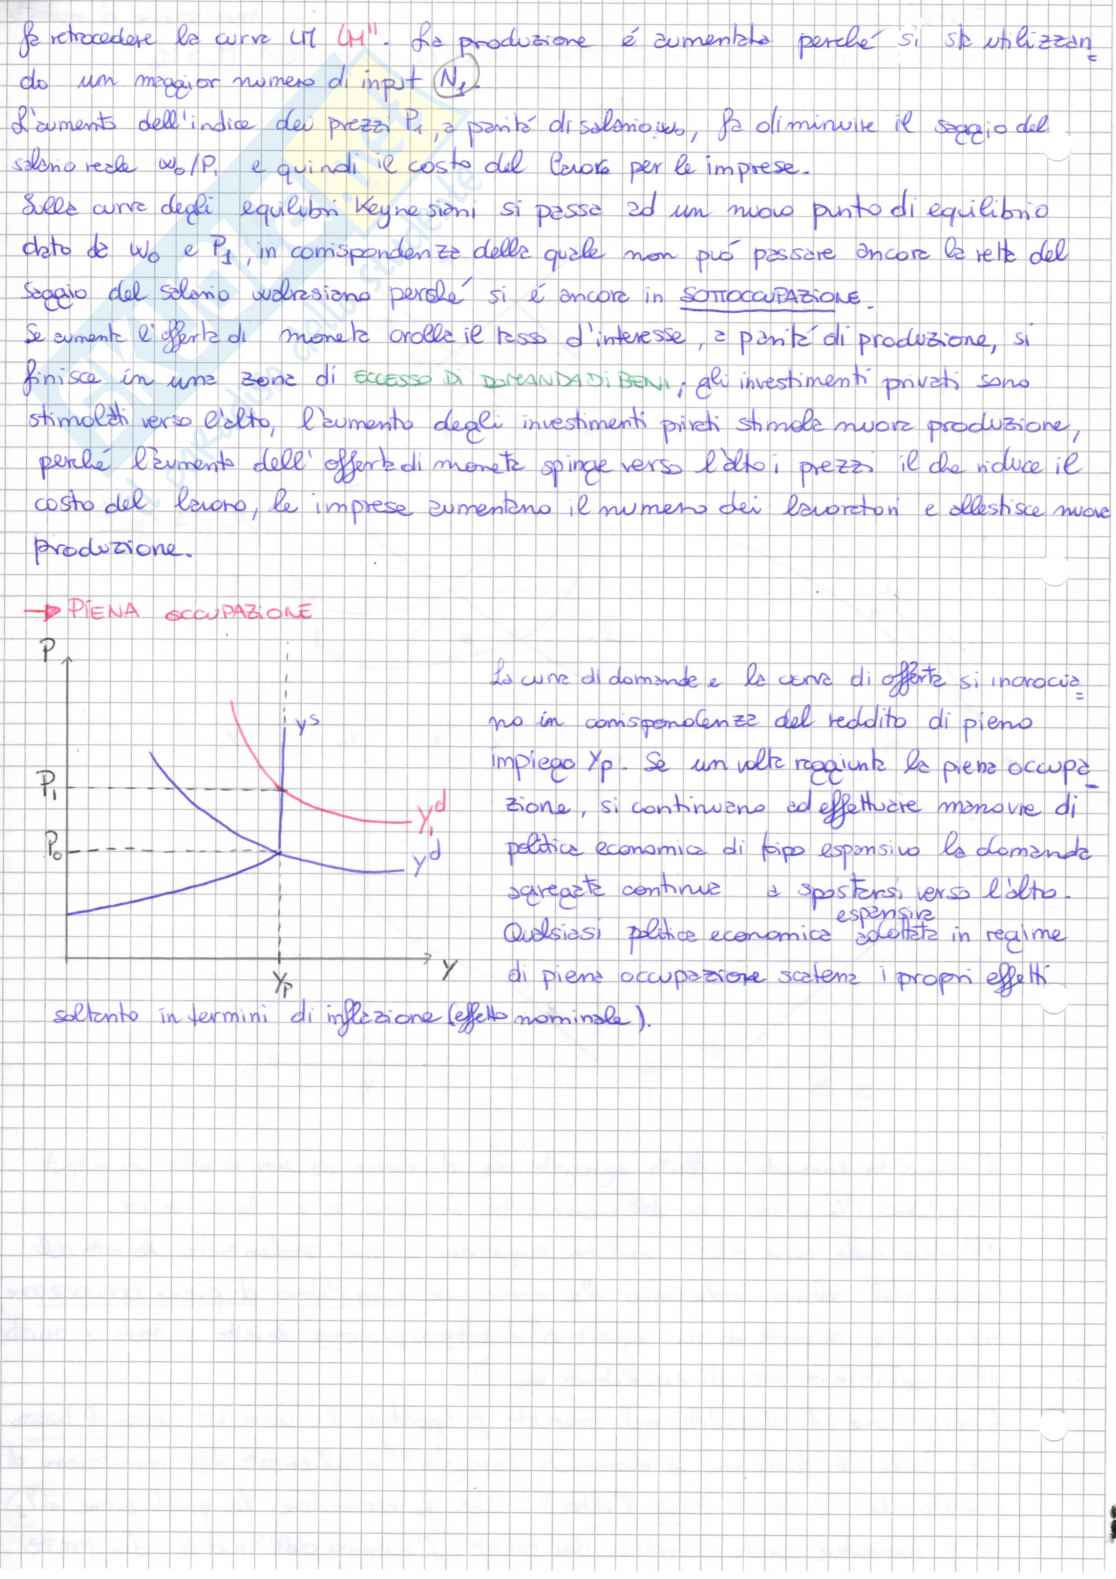 fa retrocedere la curva LM LM". La produzione é aumentata perché si sta utilizzan=
do un maggior numero di input N₁.
L'aumento dell'indice dei prezzi P₁, a parità di salario w₀, fa diminuire il saggio del
salario reale w₀/P₁ e quindi il costo del lavoro per le imprese.
Sulla curva degli equilibri Keynesiani si passa ad un nuovo punto di equilibrio
dato da w₀ e P₁, in corrispondenza della quale non può passare ancora la retta del
saggio del salario walrasiano perché si é ancora in SOTTOCCUPAZIONE.
Se aumenta l'offerta di moneta crolla il tasso d'interesse, a parità di produzione, si
finisce in una zona di ECCESSO DI DOMANDA DI BENI, gli investimenti privati sono
stimolati verso l'alto, l'aumento degli investimenti privati stimola nuova produzione,
perché l'aumento dell'offerta di moneta spinge verso l'alto i prezzi il che riduce il
costo del lavoro, le imprese aumentano il numero dei lavoratori e allestisce nuova
produzione.
→ PIENA OCCUPAZIONE
P
yˢ
P₁
y₁ᵈ
P₀
yᵈ
Y
Yp
La curva di domanda e la curva di offerta si incrocia=
no in corrispondenza del reddito di pieno
impiego Yp. Se un volta raggiunta la piena occupa=
zione, si continuano ad effettuare manovre di
politica economica di tipo espansivo la domanda
aggregata continua a spostarsi verso l'alto.
espansiva
Qualsiasi politica economica adottata in regime
di piena occupazione scatena i propri effetti
soltanto in termini di inflazione (effetto nominale).